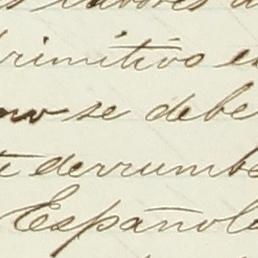 labores
primitivo e
no se debe
derrumbe
Español